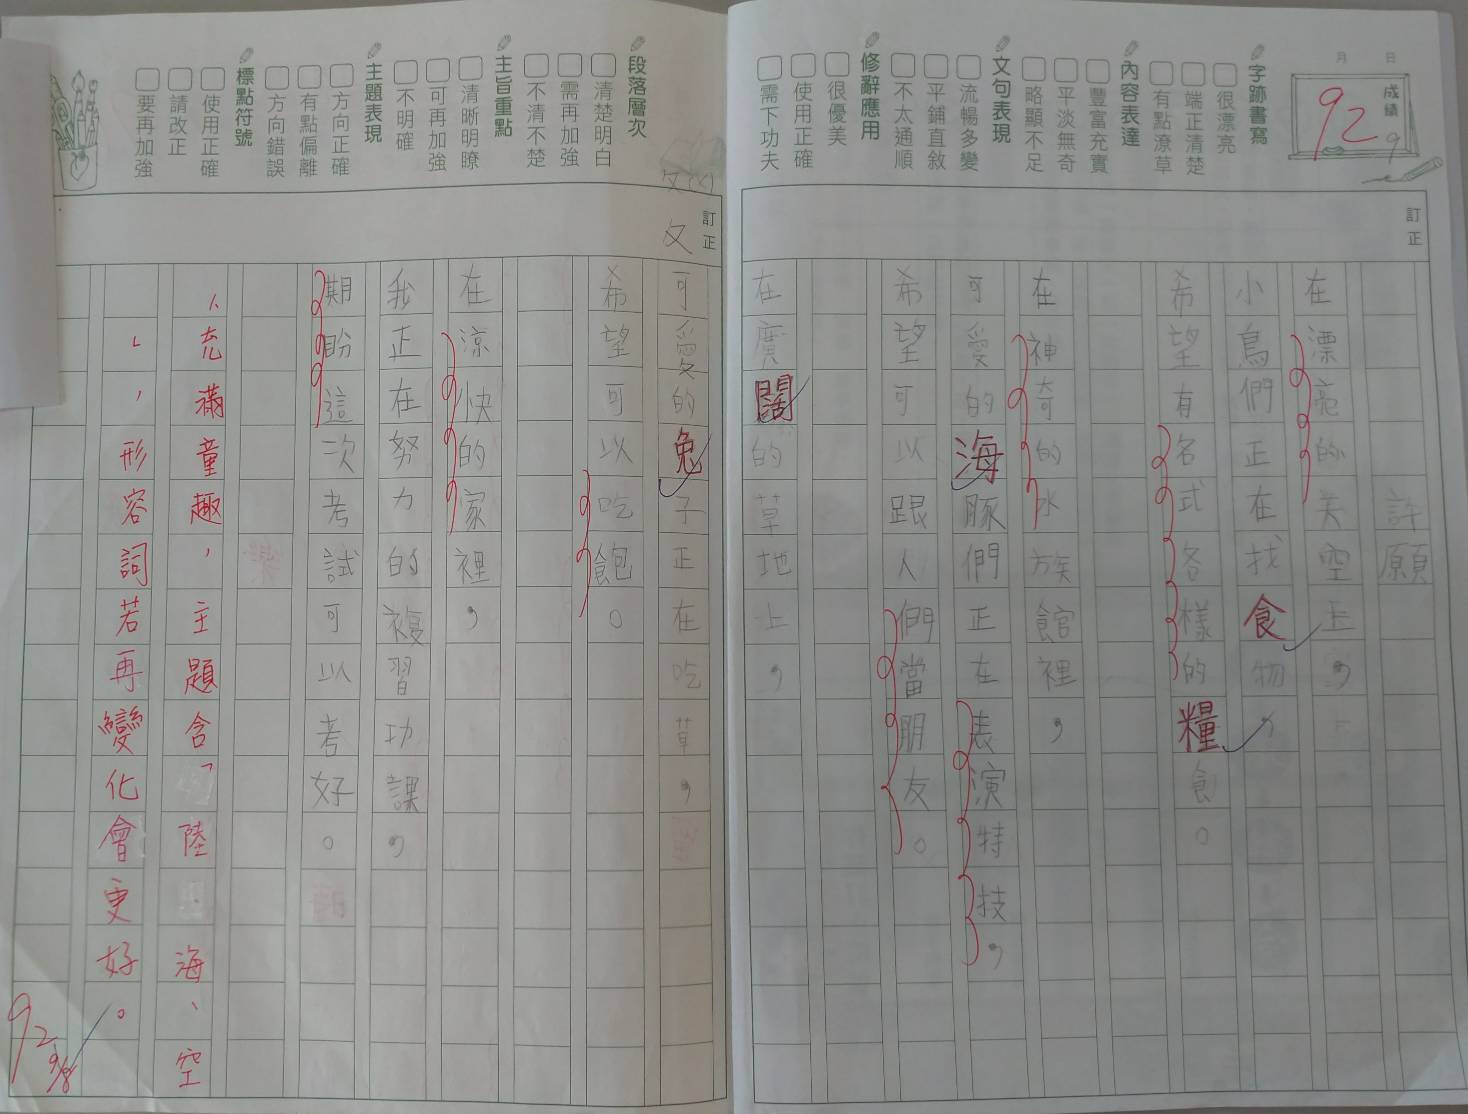 月 日
成績
92
9
字跡書寫
很漂亮
端正清楚
有點潦草
內容表達
豐富充實
平淡無奇
略顯不足
文句表現
流暢多變
平鋪直敘
不太通順
修辭應用
很優美
使用正確
需下功夫
訂正
許願
在漂亮的天空上，
小鳥們正在找食物，
希望有各式各樣的糧食。
在神奇的水族館裡，
可愛的海豚們正在表演特技，
希望可以跟人們當朋友。
在廣闊的草地上，
段落層次
清楚明白
需再加強
不清不楚
主旨重點
清晰明瞭
可再加強
不明確
主題表現
方向正確
有點偏離
方向錯誤
標點符號
使用正確
請改正
要再加強
訂正
可愛的兔子正在吃草，
希望可以吃飽。
在涼快的家裡，
我正在努力的複習功課，
期盼這次考試可以考好。
、充滿童趣，主題含「陸、海、空
」，形容詞若再變化會更好。
92
9/8